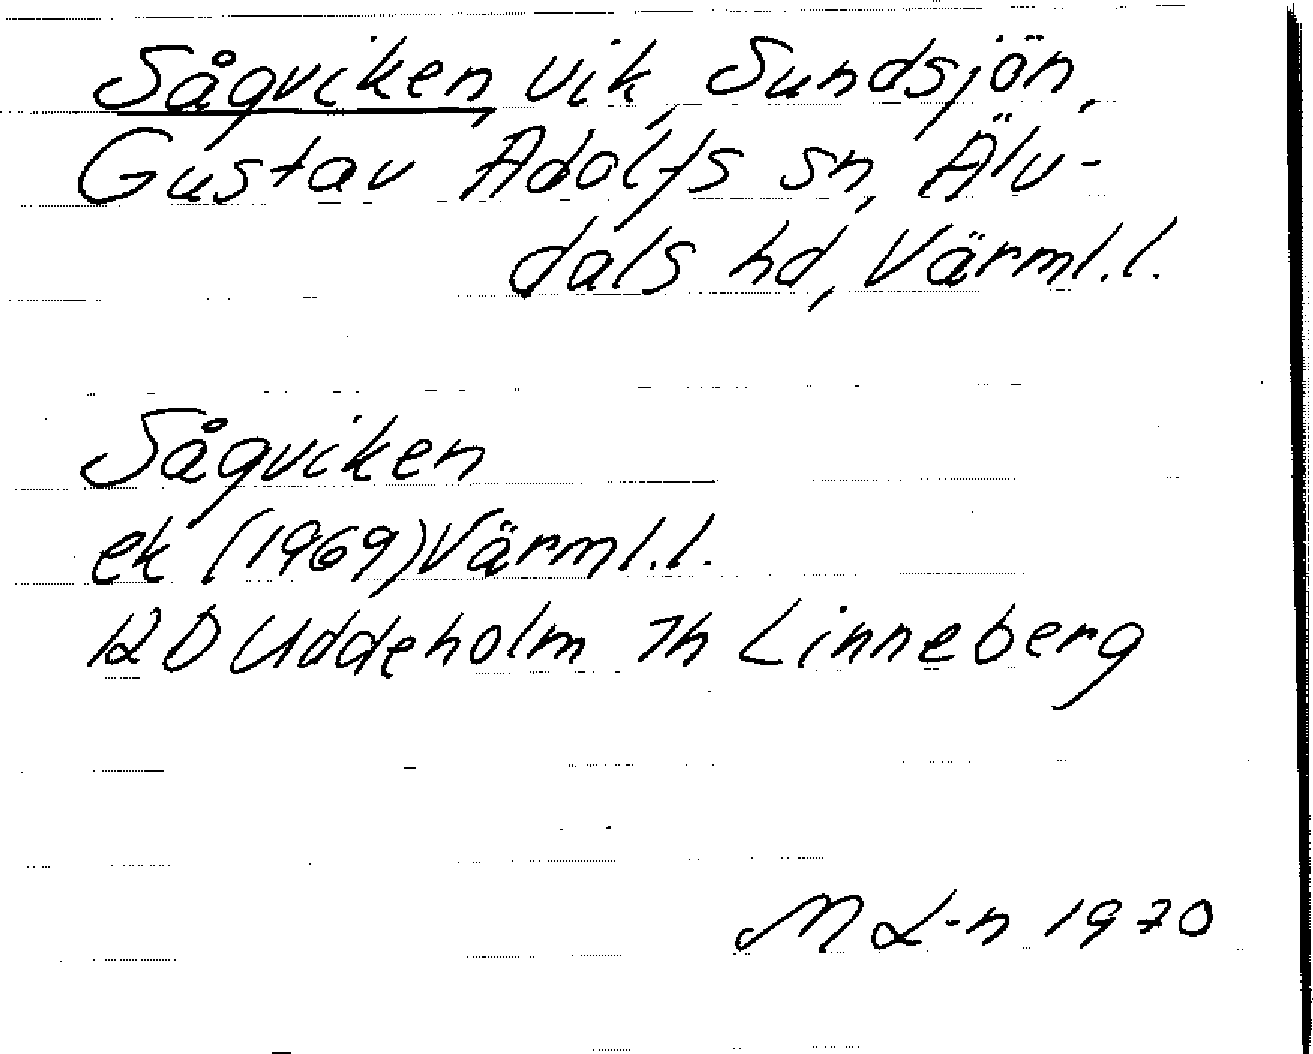 Sågviken, vik, Sundsjön,
Gustav Adolfs sn, Älv-
dals hd, Värml.l.
Sågviken
ek (1969) Värml.l.
12 D Uddeholm 7h Linneberg
M L-n 1970